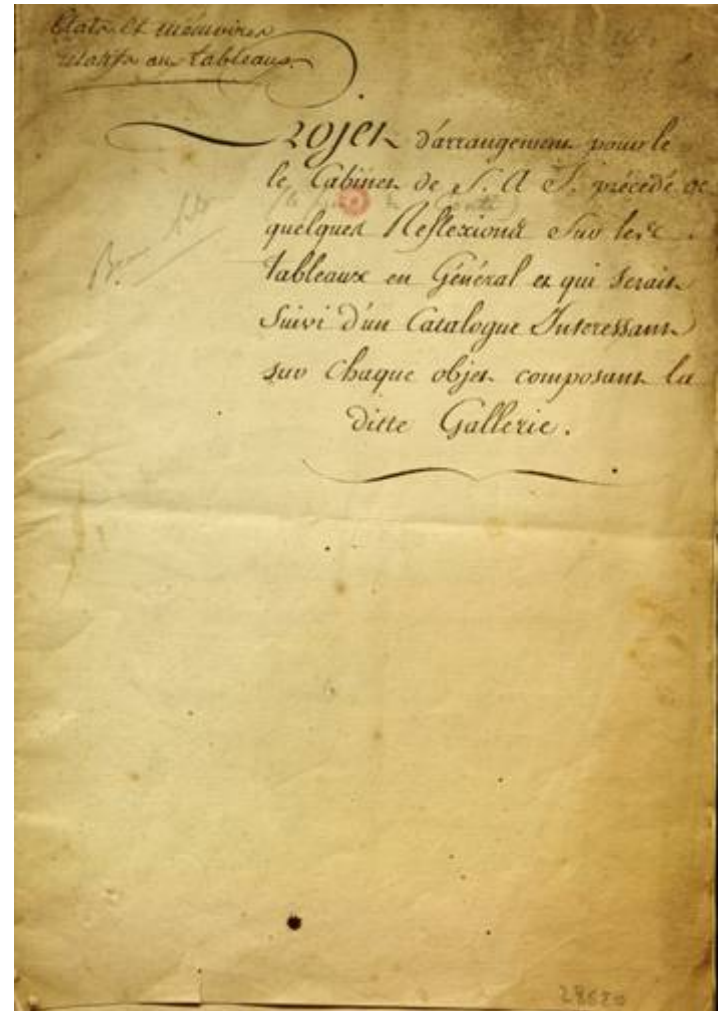 États et mémoires
relatifs aux tableaux.
Projet d'arrangement pour le
le Cabinet de S. A S. précédé de
(le Conti)
quelques Reflexions Sur les
tableaux en Général et qui Serait
Suivi d'un Catalogue Interessant
sur Chaque objet composant la
ditte Gallerie.
Beaux Arts
28620